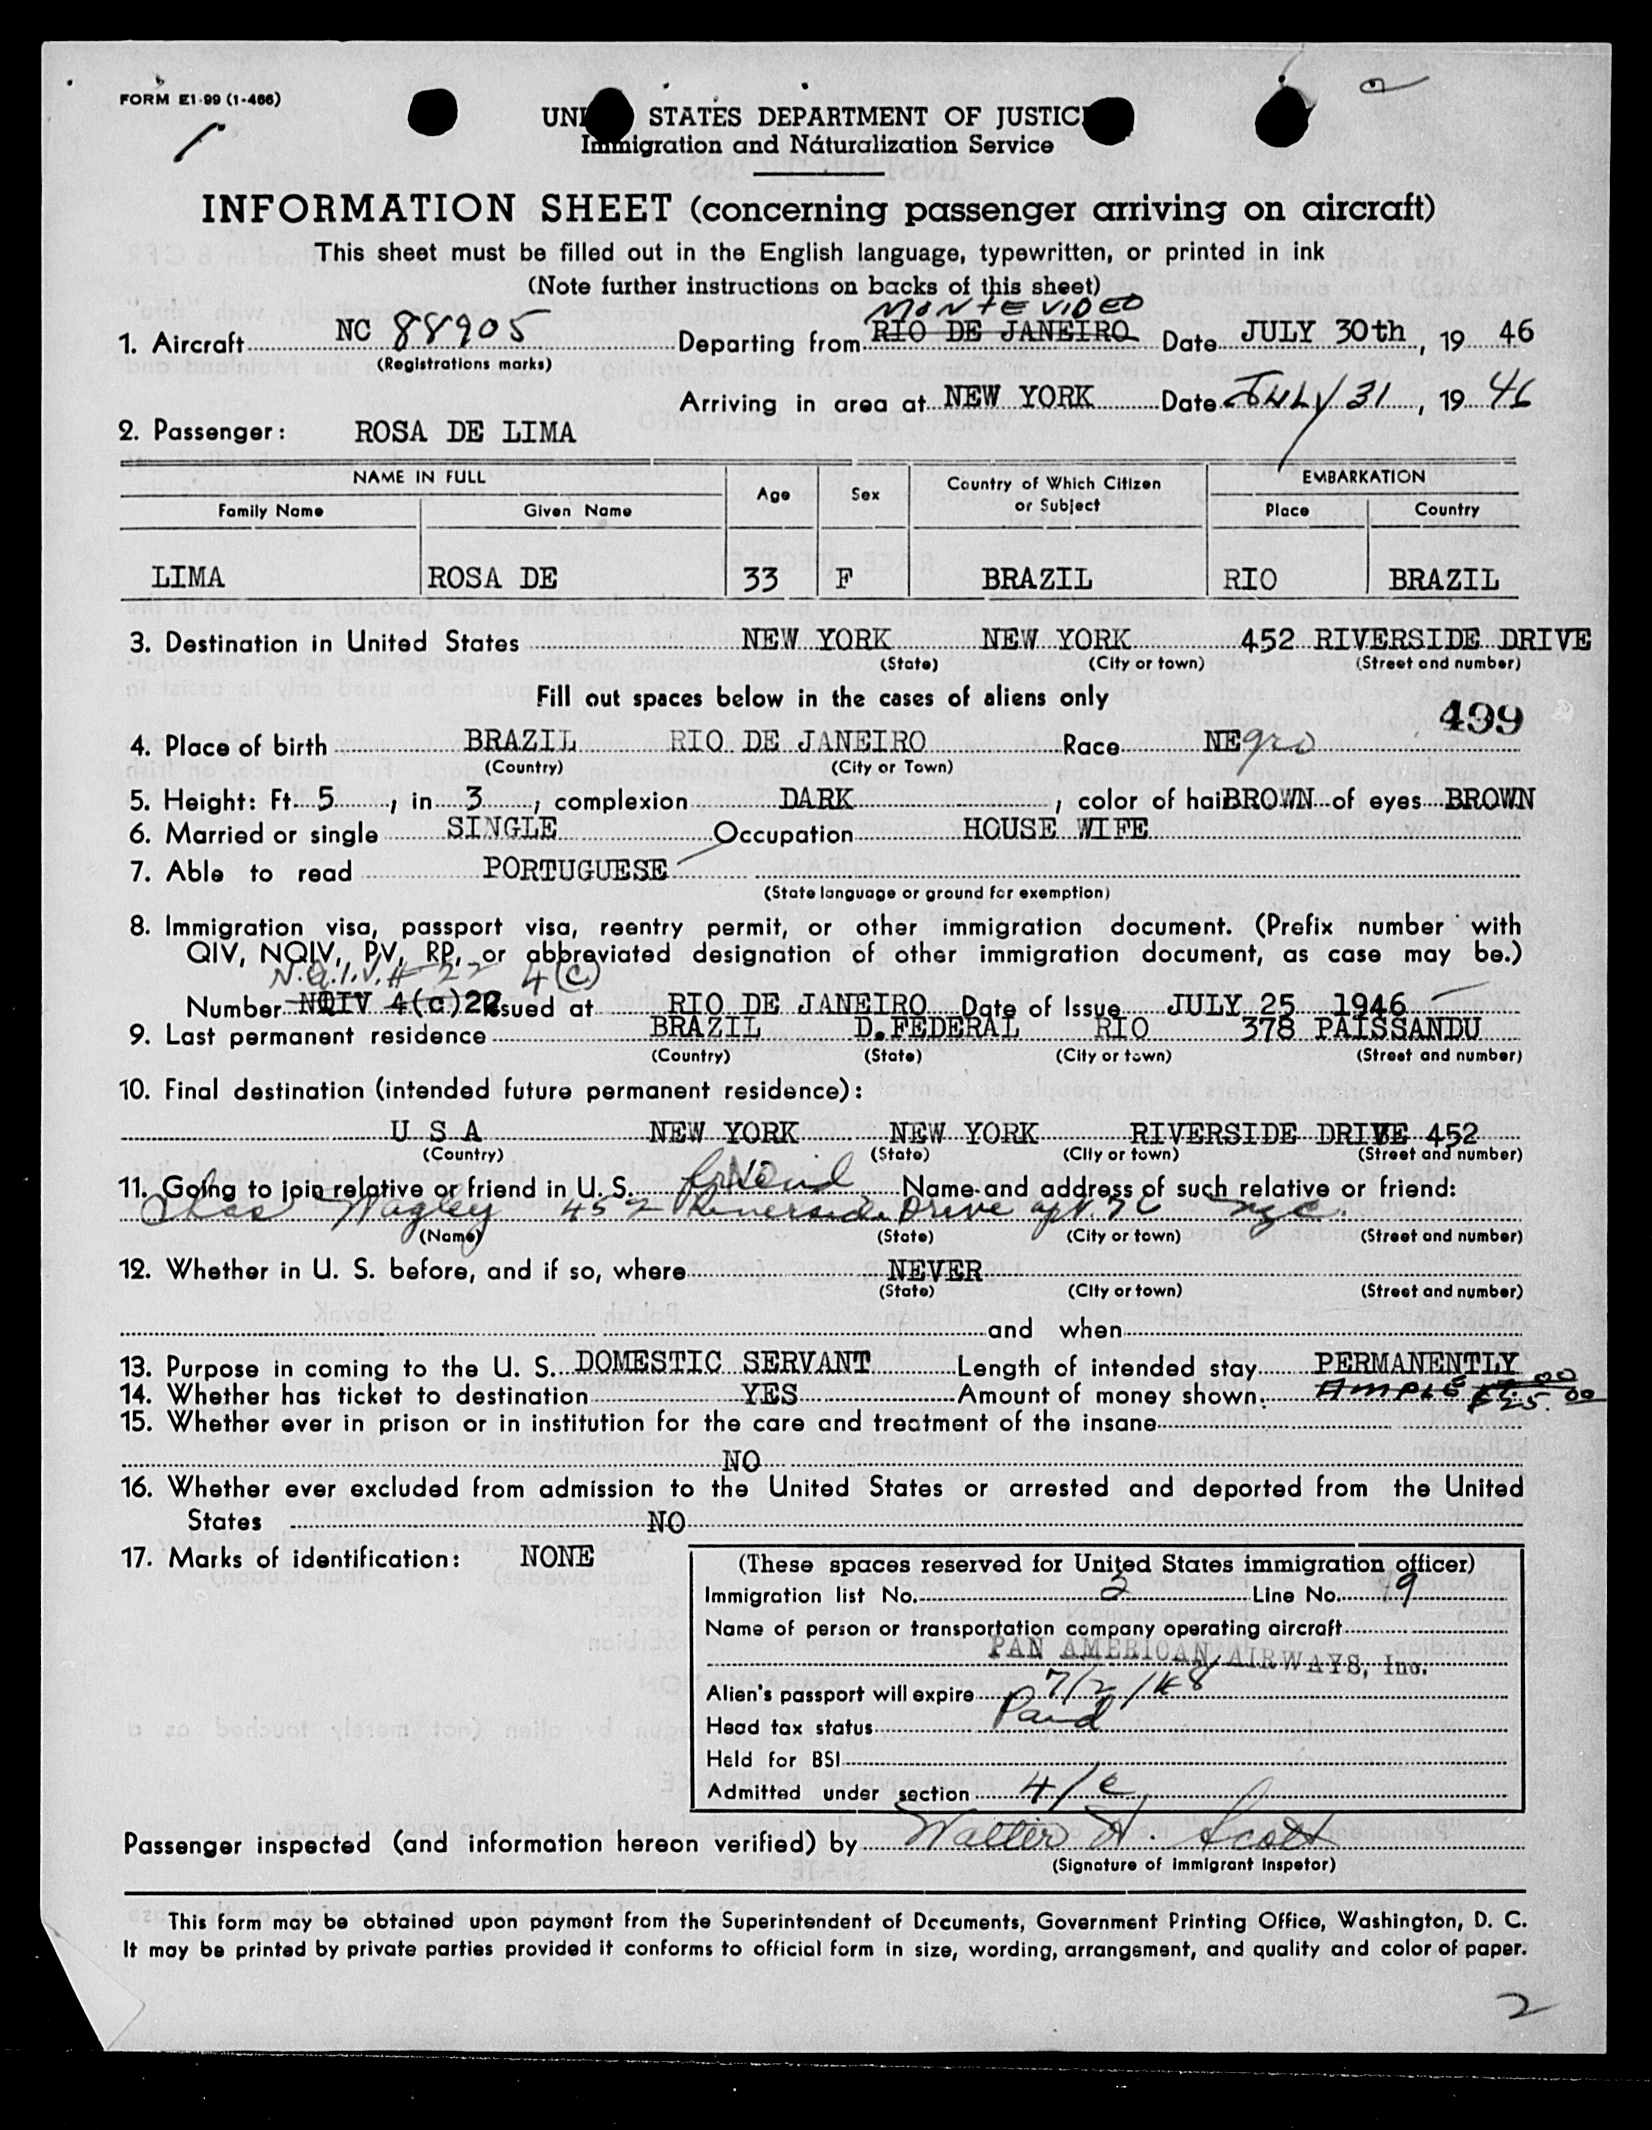 FORM E1-99 (1-466)
UNI STATES DEPARTMENT OF JUSTIC
Immigration and Naturalization Service
INFORMATION SHEET (concerning passenger arriving on aircraft)
This sheet must be filled out in the English language, typewritten, or printed in ink
(Note further instructions on backs of this sheet)
MONTEVIDEO
1. Aircraft NC 88905 Departing from RIO DE JANEIRO Date JULY 30th, 19 46
(Registrations marks)
Arriving in area at NEW YORK Date JULY 31, 19 46
2. Passenger: ROSA DE LIMA
NAME IN FULL Age Sex Country of Which Citizen or Subject EMBARKATION
Family Name Given Name Place Country
LIMA ROSA DE 33 F BRAZIL RIO BRAZIL
3. Destination in United States NEW YORK NEW YORK 452 RIVERSIDE DRIVE
(State) (City or town) (Street and number)
Fill out spaces below in the cases of aliens only
499
4. Place of birth BRAZIL RIO DE JANEIRO Race NEgro
(Country) (City or Town)
5. Height: Ft. 5, in. 3, complexion DARK, color of haiBROWN of eyes BROWN
6. Married or single SINGLE Occupation HOUSE WIFE
7. Able to read PORTUGUESE
(State language or ground for exemption)
8. Immigration visa, passport visa, reentry permit, or other immigration document. (Prefix number with
QIV, NQIV, PV, RP, or abbreviated designation of other immigration document, as case may be.)
N.Q.I.V. # 22 4(c)
Number NQIV 4(c)22 Issued at RIO DE JANEIRO Date of Issue JULY 25 1946
9. Last permanent residence BRAZIL D.FEDERAL RIO 378 PAISSANDU
(Country) (State) (City or town) (Street and number)
10. Final destination (intended future permanent residence):
U S A NEW YORK NEW YORK RIVERSIDE DRIVE 452
(Country) (State) (City or town) (Street and number)
11. Going to join relative or friend in U. S. NO friend Name and address of such relative or friend:
Chas Wagley 452 Riverside Drive apt. 3C nyc.
(Name) (State) (City or town) (Street and number)
12. Whether in U. S. before, and if so, where NEVER
(State) (City or town) (Street and number)
and when
13. Purpose in coming to the U. S. DOMESTIC SERVANT Length of intended stay PERMANENTLY
14. Whether has ticket to destination YES Amount of money shown: AMPLE $25.00
15. Whether ever in prison or in institution for the care and treatment of the insane
NO
16. Whether ever excluded from admission to the United States or arrested and deported from the United
States NO
17. Marks of identification: NONE
(These spaces reserved for United States immigration officer)
Immigration list No. 2 Line No. 19
Name of person or transportation company operating aircraft
PAN AMERICAN AIRWAYS, Inc.
Alien's passport will expire 7/2/48
Head tax status Paid
Held for BSI
Admitted under section 4/c
Passenger inspected (and information hereon verified) by Walter H. Scott
(Signature of Immigrant Inspetor)
This form may be obtained upon payment from the Superintendent of Documents, Government Printing Office, Washington, D. C.
It may be printed by private parties provided it conforms to official form in size, wording, arrangement, and quality and color of paper.
2